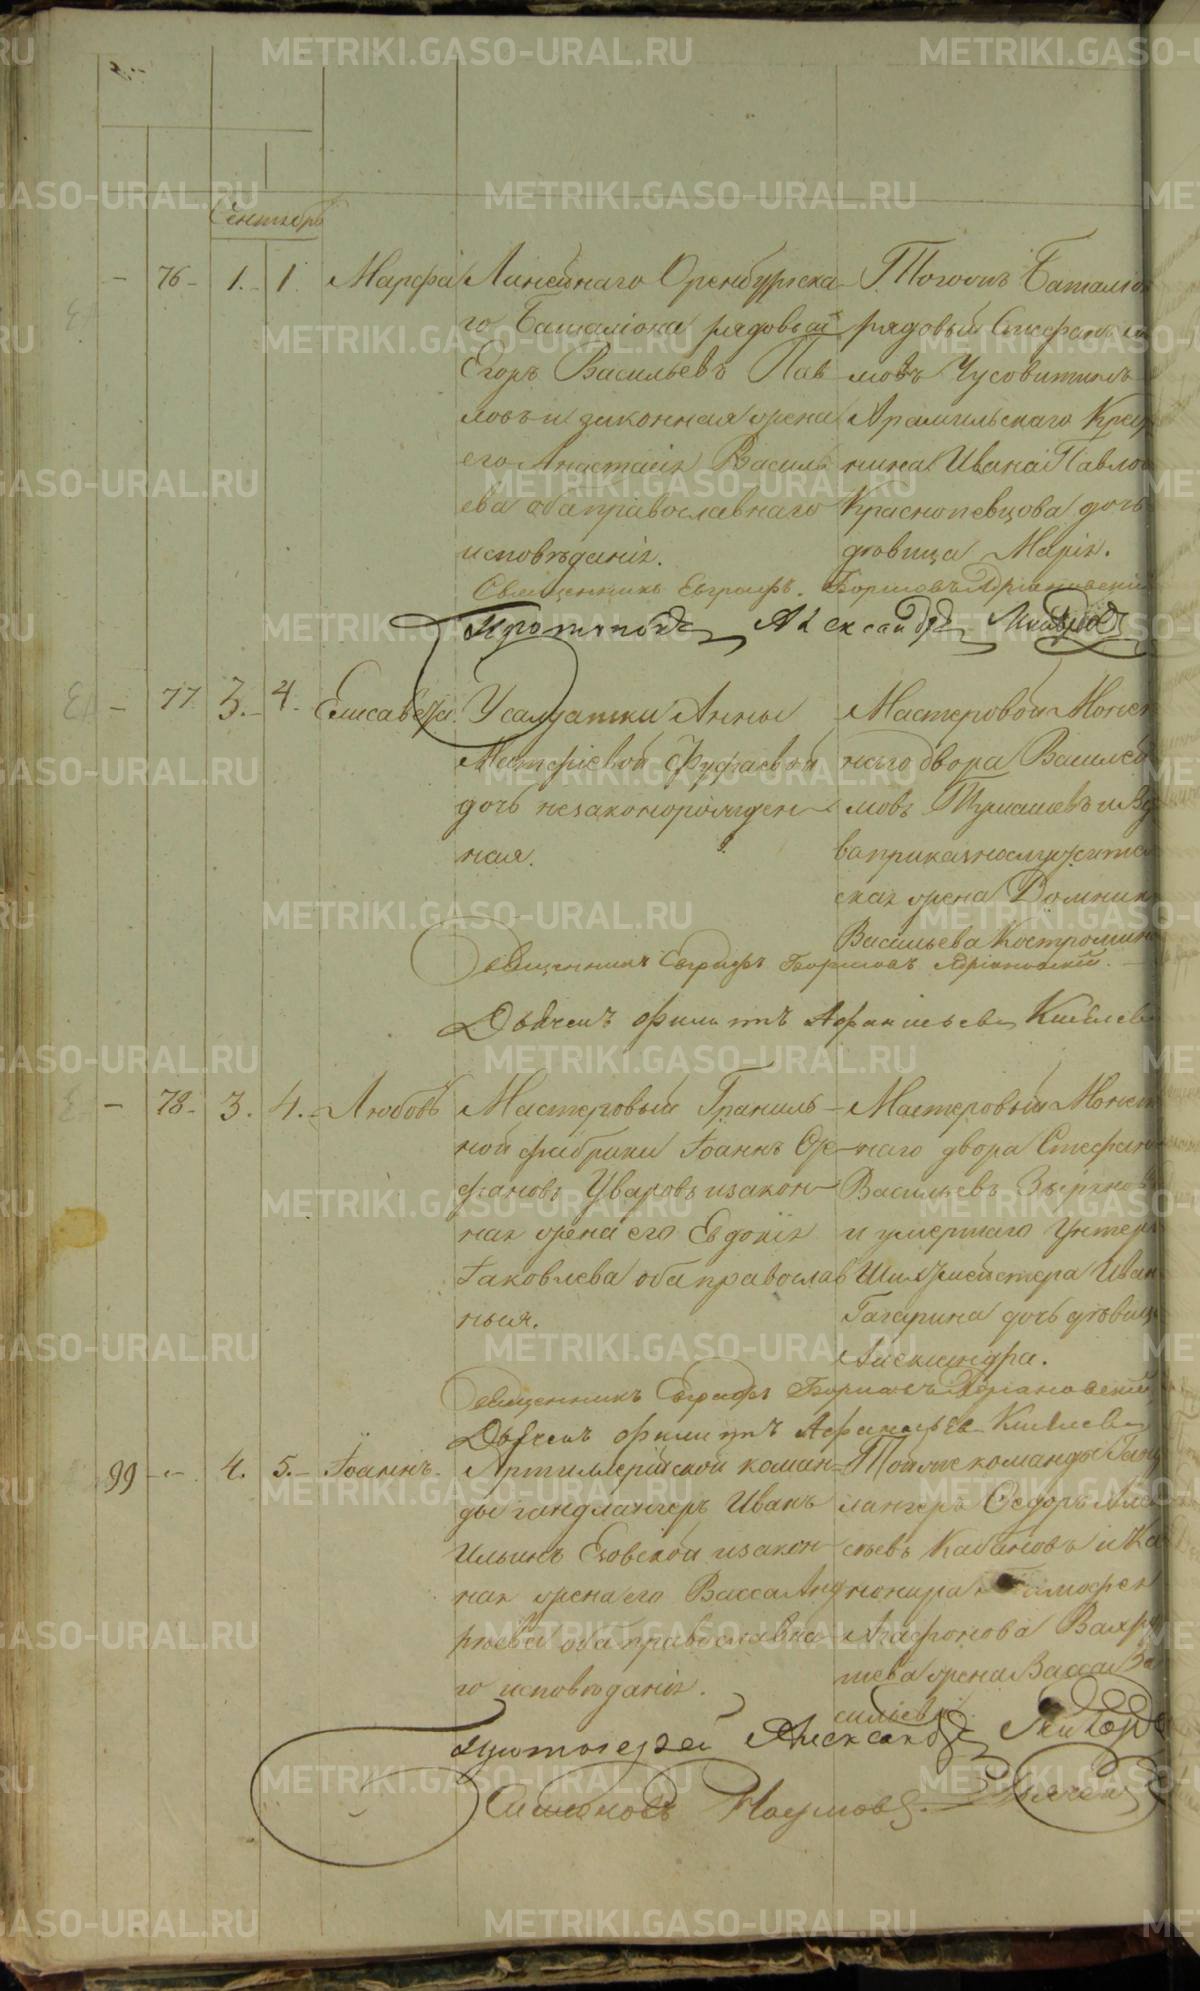 METRIKI.GASO-URAL.RU
Сентябрь
76 - 1. 1. Марфа
Линейнаго Оренбургска-
го Баталіона рядовый
Егоръ Васильевъ Пав
ловъ и законная жена
его Анастасія Василь
ева оба православнаго
исповѣданія.
Тогожъ Баталіо
рядовый Стефанъ
ловъ Чусовитинъ
Арамильскаго Кре
нина Ивана Павлов
Краснопевцова дочь
дѣвица Марія.
Священникъ Евграфъ Борисовъ Адріановскій
Протоіерей Александръ
77 3. 4. Елисавета.
У салдатки Анны
Матфіевой Фуфаевой
дочь незаконорожден-
ная.
Мастеровой Монет
наго двора Василей
ловъ Тумашевъ и Вд
ва приказнослужител
ская жена Домника
Васильева Костромина
Священникъ Евграфъ Борисовъ Адріановскій.
Дьячекъ Филиппъ Афанасьевъ Киселевъ
78 - 3. 4. - Любовь
Мастеровый Граниль-
ной фабрики Іоаннъ Ор-
фановъ Уваровъ и закон-
ная жена его Евдокія
Іаковлева оба православ
ныя.
Мастеровый Монет
наго двора Стефанъ
Васильевъ Зырянов
и умершаго Унтеръ
Шихтмейстера Иван
Гагарина дочь дѣвица
Александра.
Священникъ Евграфъ Борисовъ Адріановскій
Дьячекъ Филиппъ Афанасьевъ Киселевъ
99 - 4. 5. - Іоаннъ.
Артиллерійской коман-
ды гандлангеръ Иванъ
Ильинъ Еговской и закон-
ная жена его Васса Анд
рѣева оба православна-
го исповѣданія.
Той же команды Ганд
лангеръ Ѳедоръ Але
сѣевъ Кабановъ и Ка
нонира Тимофея
Агафонова Вахру
шева жена Васса Ва
сильева.
Протоіерей Александръ
Симеонъ Наумовъ. Дьячекъ